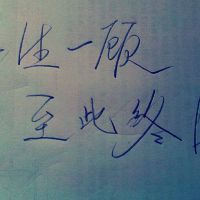 一生一顾
至此终